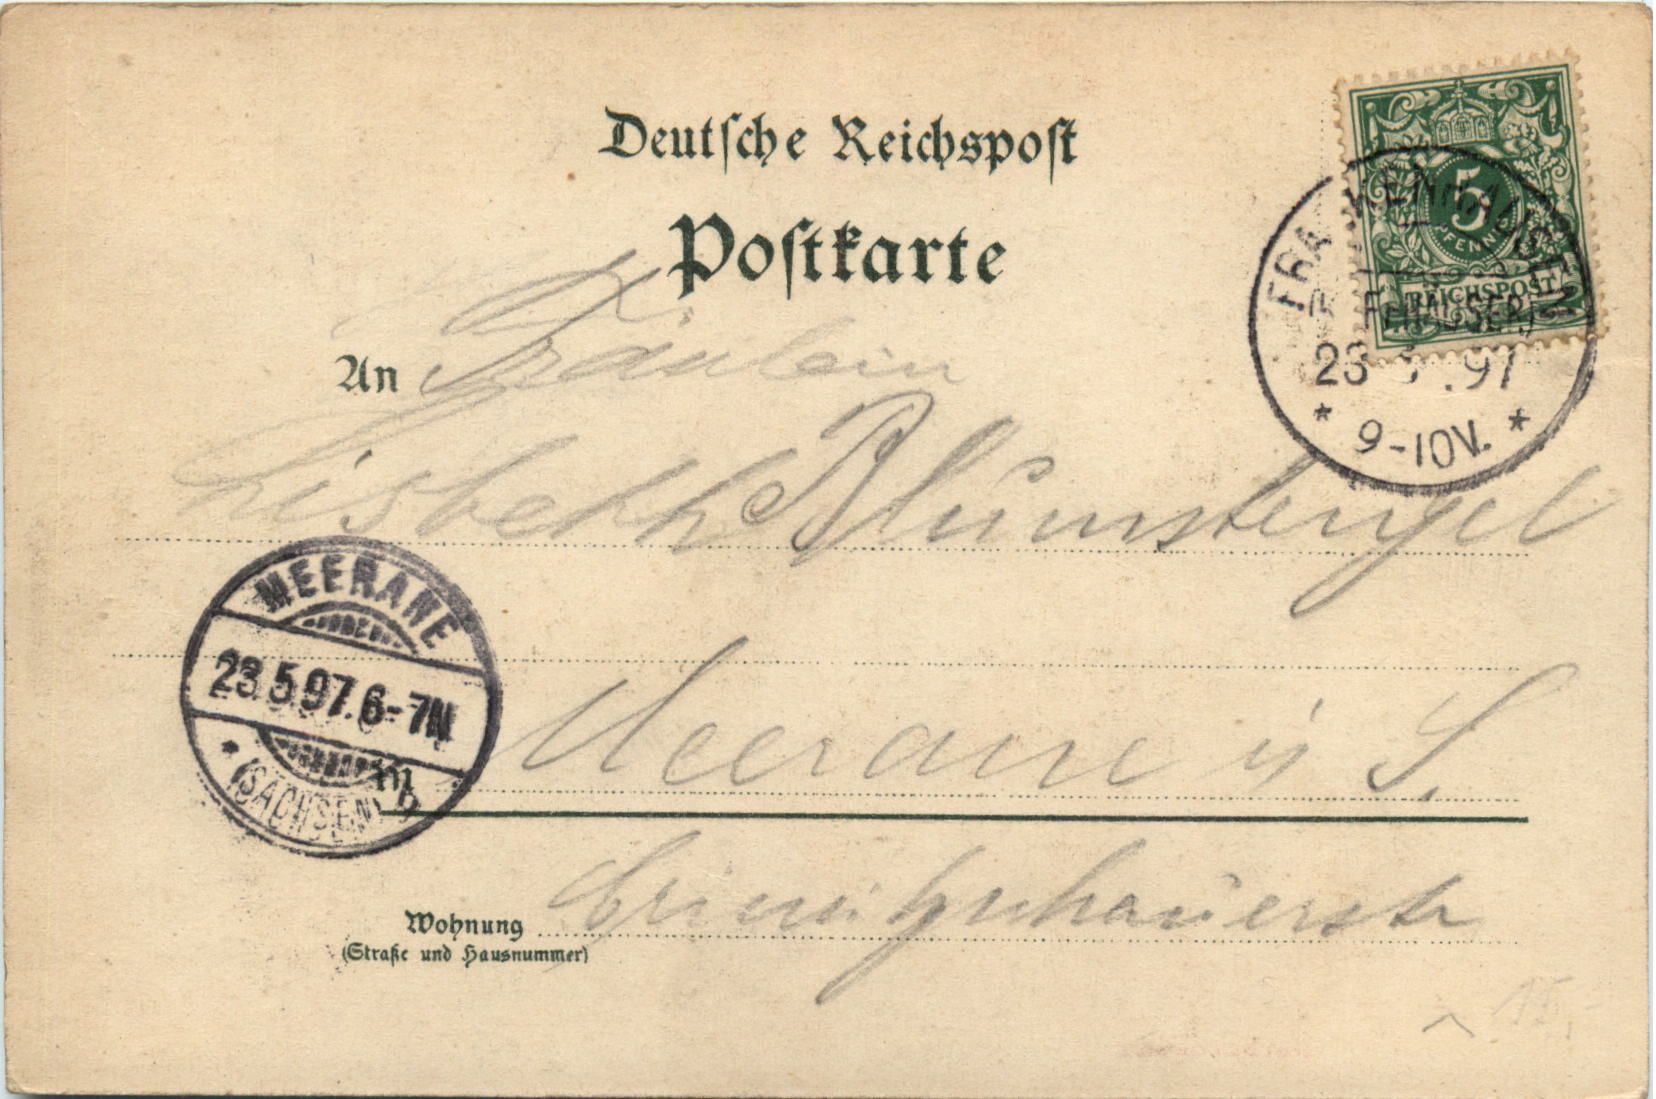 Deutsche Reichspost
Postkarte
5
PFENNIG
REICHSPOST
FRANKENHAUSEN
(KYFFHÄUSER)
23 5 .97
* 9-10V. *
An Fräulein
Lisbeth Blümstengel
MEERANE
23.5.97.6-7N
* (SACHSEN)
Meerane i/S.
in
Wohnung
(Straße und Hausnummer)
15,-